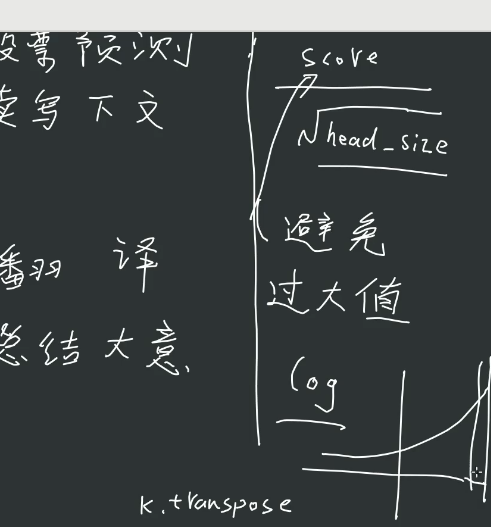 投票预测
读写下文
翻译
总结大意
score
√head_size
避免
过大值
log
k.transpose